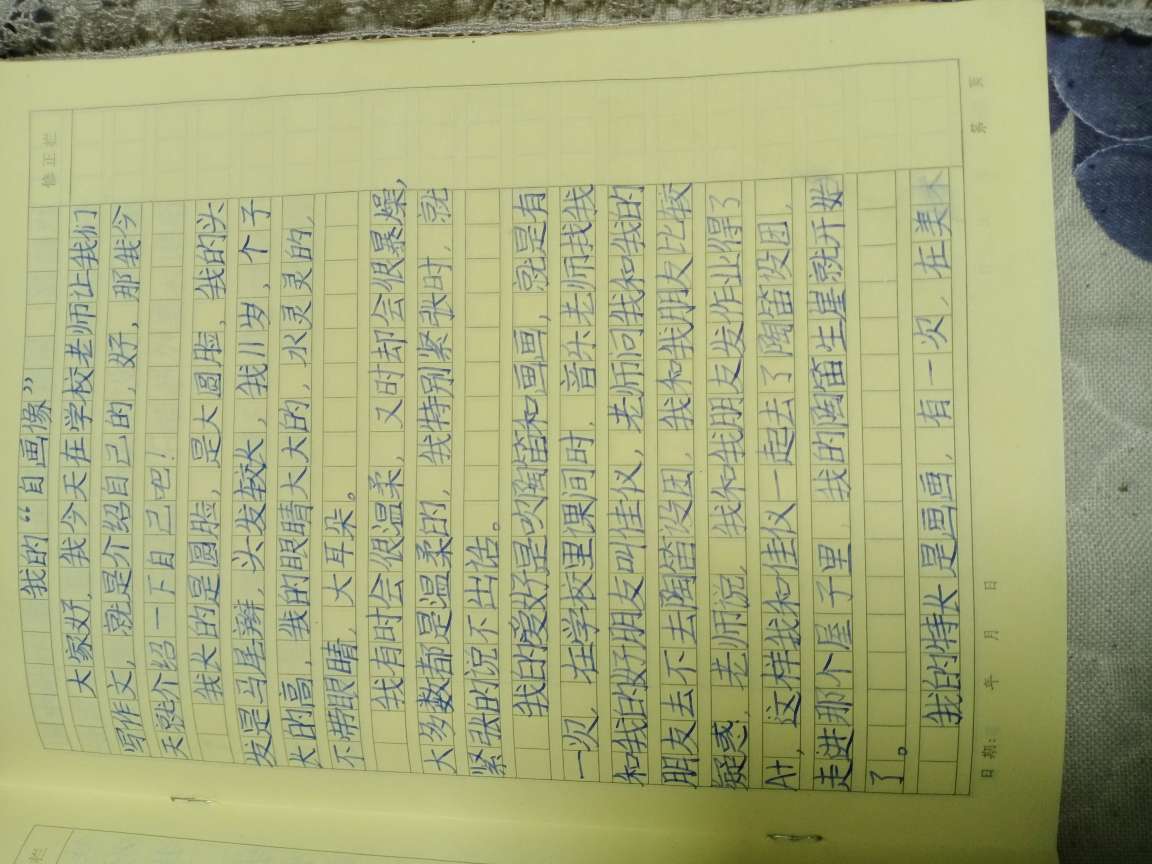 修正栏
我的“自画像”
大家好，我今天在学校老师让我们
写作文，就是介绍自己的，好，那我今
天就介绍一下自己吧！
我长的是圆脸，是大圆脸，我的头
发是马尾辫，头发较长，我11岁，个子
长的高，我的眼睛大大的，水灵灵的，
不带眼睛，大耳朵。
我有时会很温柔，又时却会很暴燥，
大多数都是温柔的，我特别紧张时，就
紧张的说不出话。
我的爱好是吹陶笛和画画，就是有
一次，在学校里课间时，音乐老师找我
和我的好朋友叫佳仪，老师问我和我的
朋友去不去陶笛设团，我和我朋友比较
疑惑，老师说，我和我朋友发作业得了
A+，这样我和佳仪一起去了陶笛设团，
走进那个屋子里，我的陶笛生崖就开始
了。
我的特长是画画，有一次，在美术
日期： 年 月 日
第 页